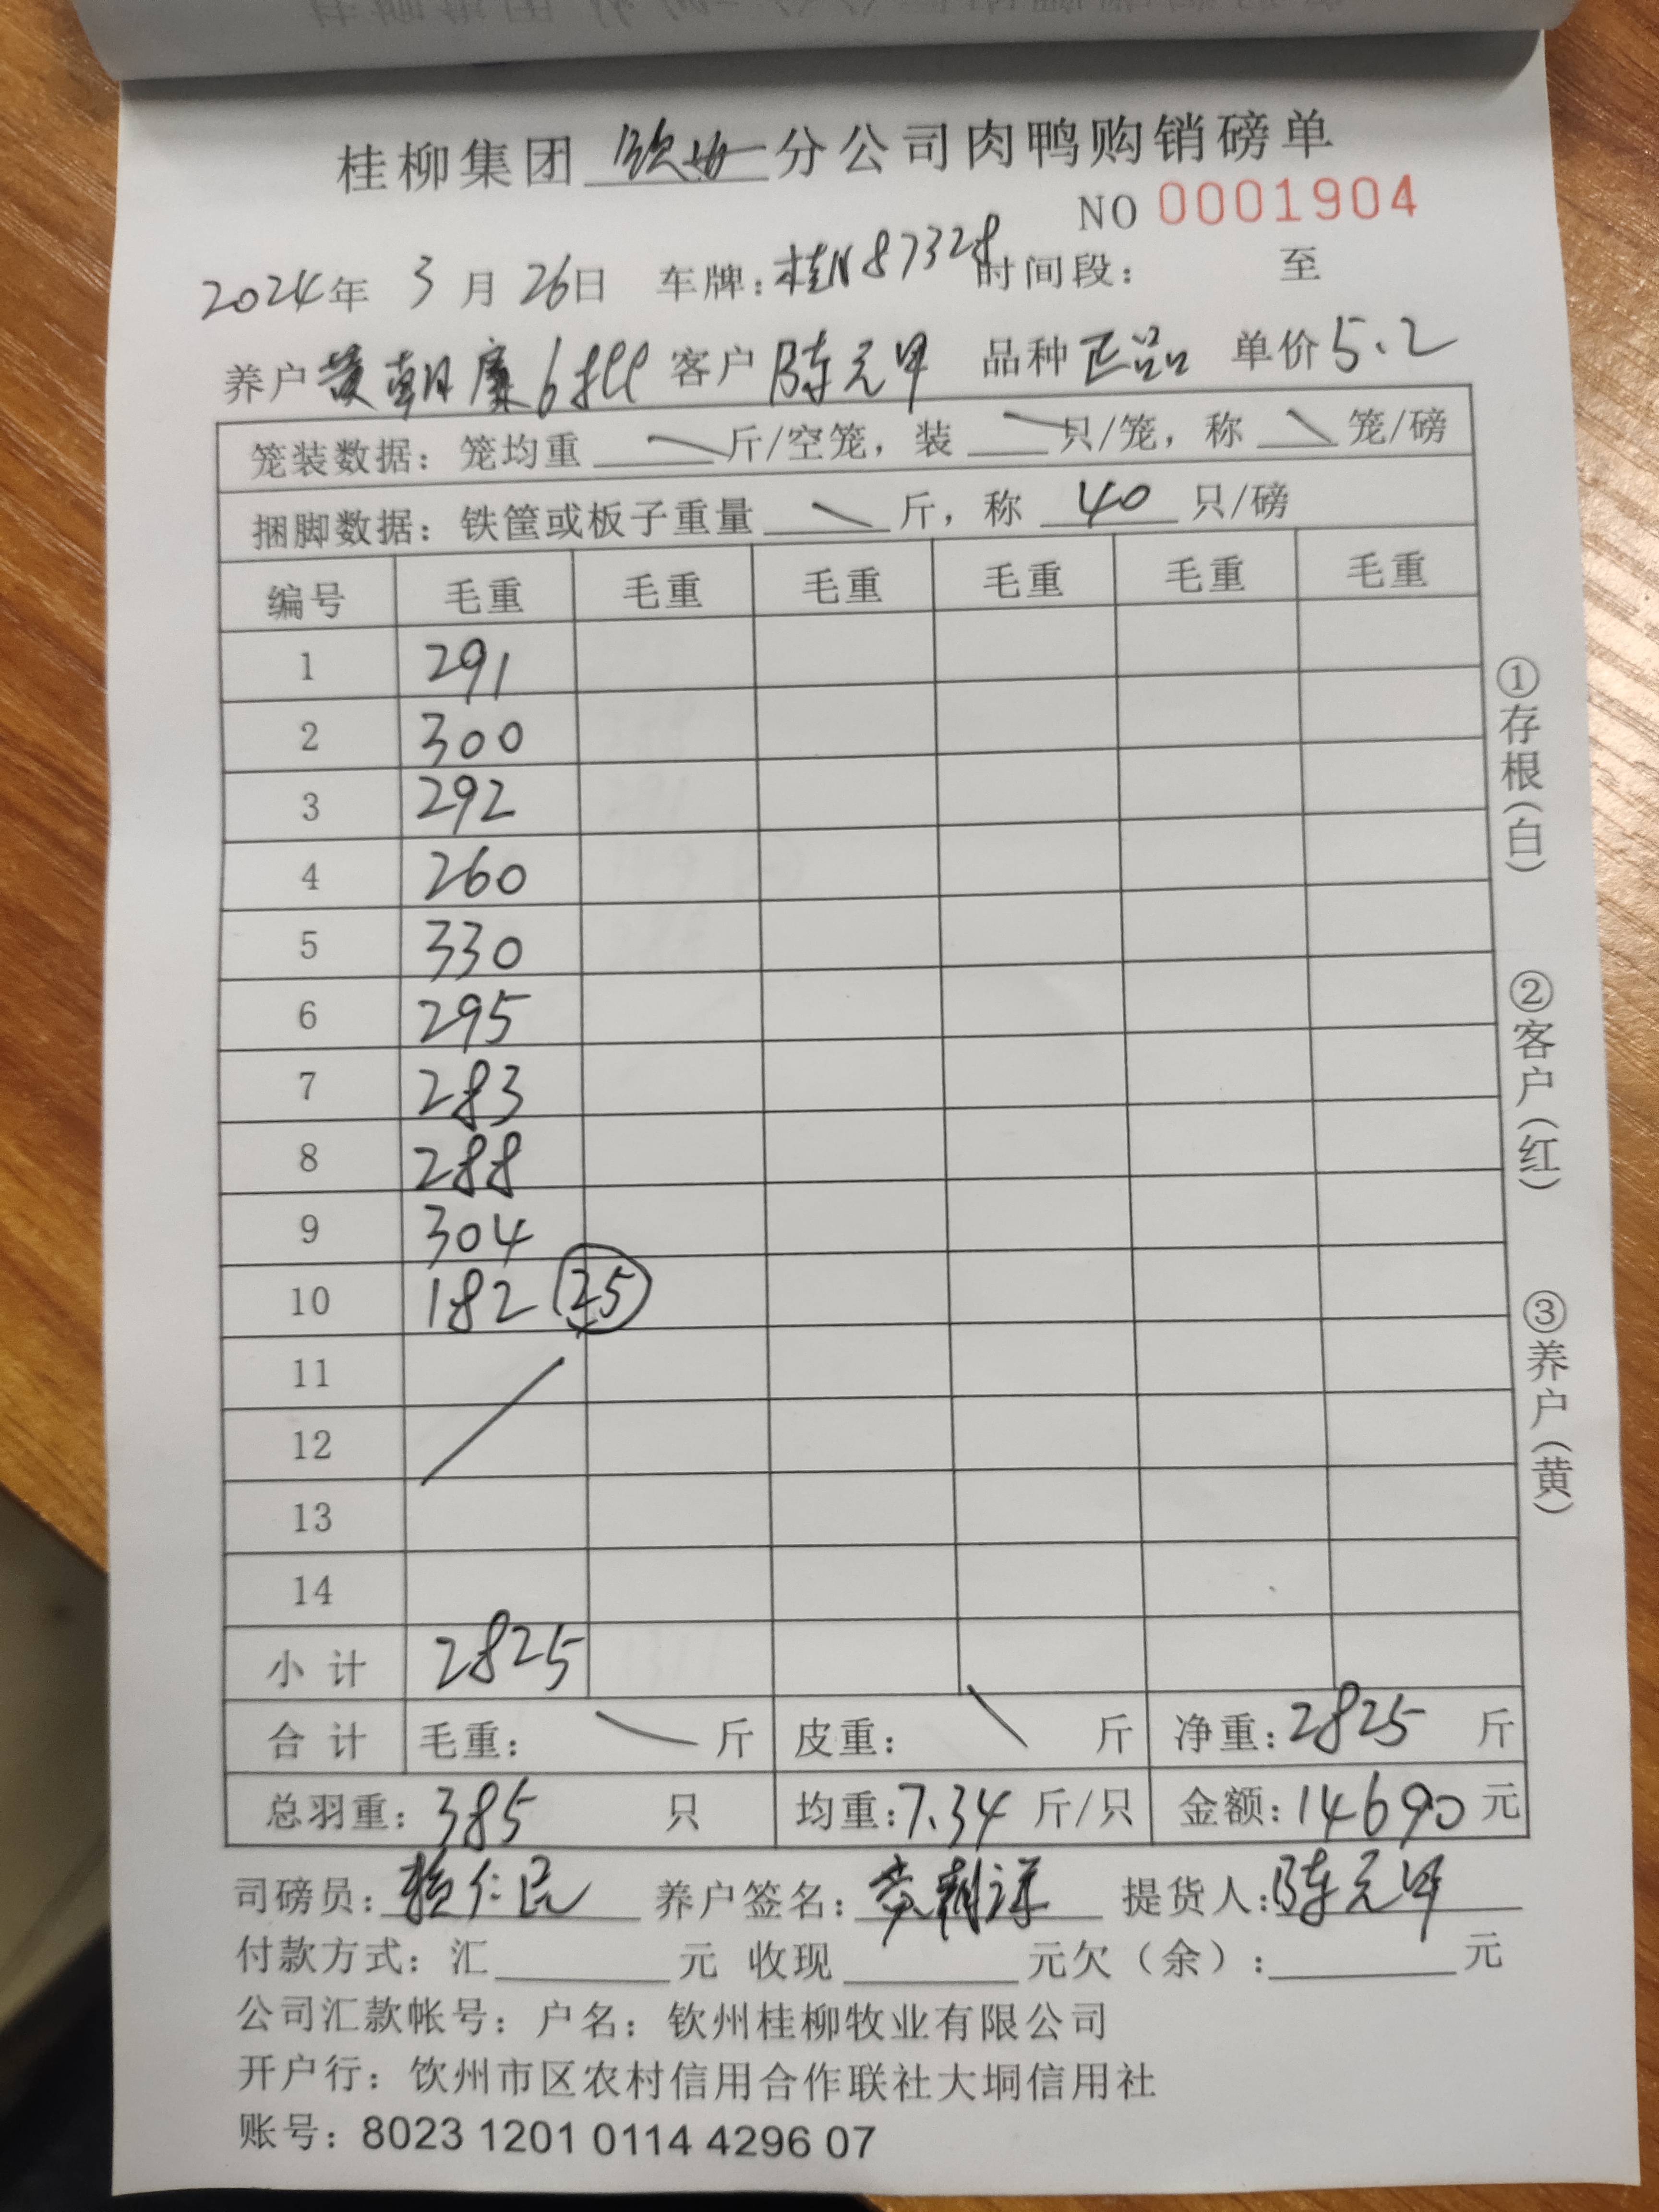 桂柳集团 钦州 分公司肉鸭购销磅单
NO 0001904
2024年 3月 26日 车牌：桂N87328 时间段： 至
养户 黄朝廉6批 客户 陈元甲 品种 正品 单价 5.2
笼装数据：笼均重 斤/空笼，装 只/笼，称 笼/磅
捆脚数据：铁筐或板子重量 斤，称 40 只/磅
编号 毛重 毛重 毛重 毛重 毛重 毛重
1 291
2 300
3 292
4 260
5 330
6 295
7 283
8 288
9 304
10 182 25
11
12
13
14
小计 2825
合计 毛重： 斤 皮重： 斤 净重：2825 斤
总羽重：385 只 均重：7.34 斤/只 金额：14690元
司磅员： 仁民 养户签名： 提货人：陈元甲
付款方式：汇 元 收现 元欠（余）： 元
公司汇款帐号：户名：钦州桂柳牧业有限公司
开户行：饮州市区农村信用合作联社大垌信用社
账号：8023 1201 0114 4296 07
①存根（白）
②客户（红）
③养户（黄）